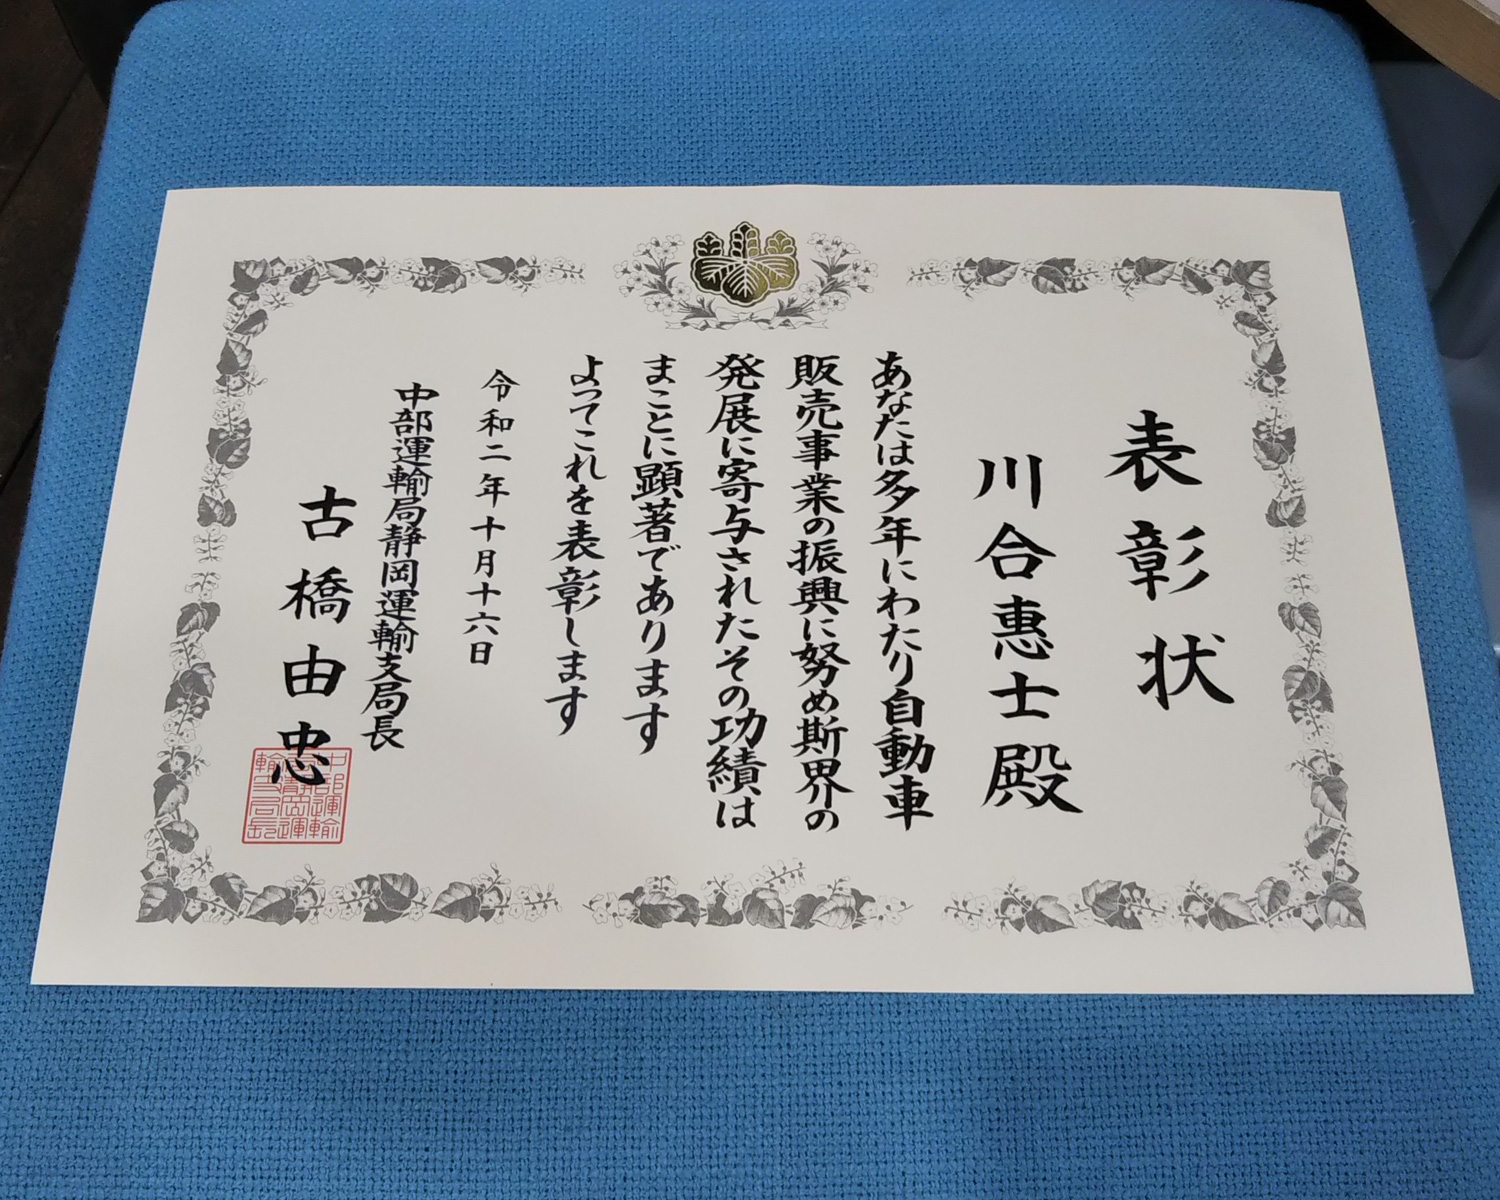 表彰状
川合惠士殿
あなたは多年にわたり自動車
販売事業の振興に努め斯界の
発展に寄与されたその功績は
まことに顕著であります
よってこれを表彰します
令和二年十月十六日
中部運輸局静岡運輸支局長
古橋由忠
中部運輸
局静岡運
輸支局長